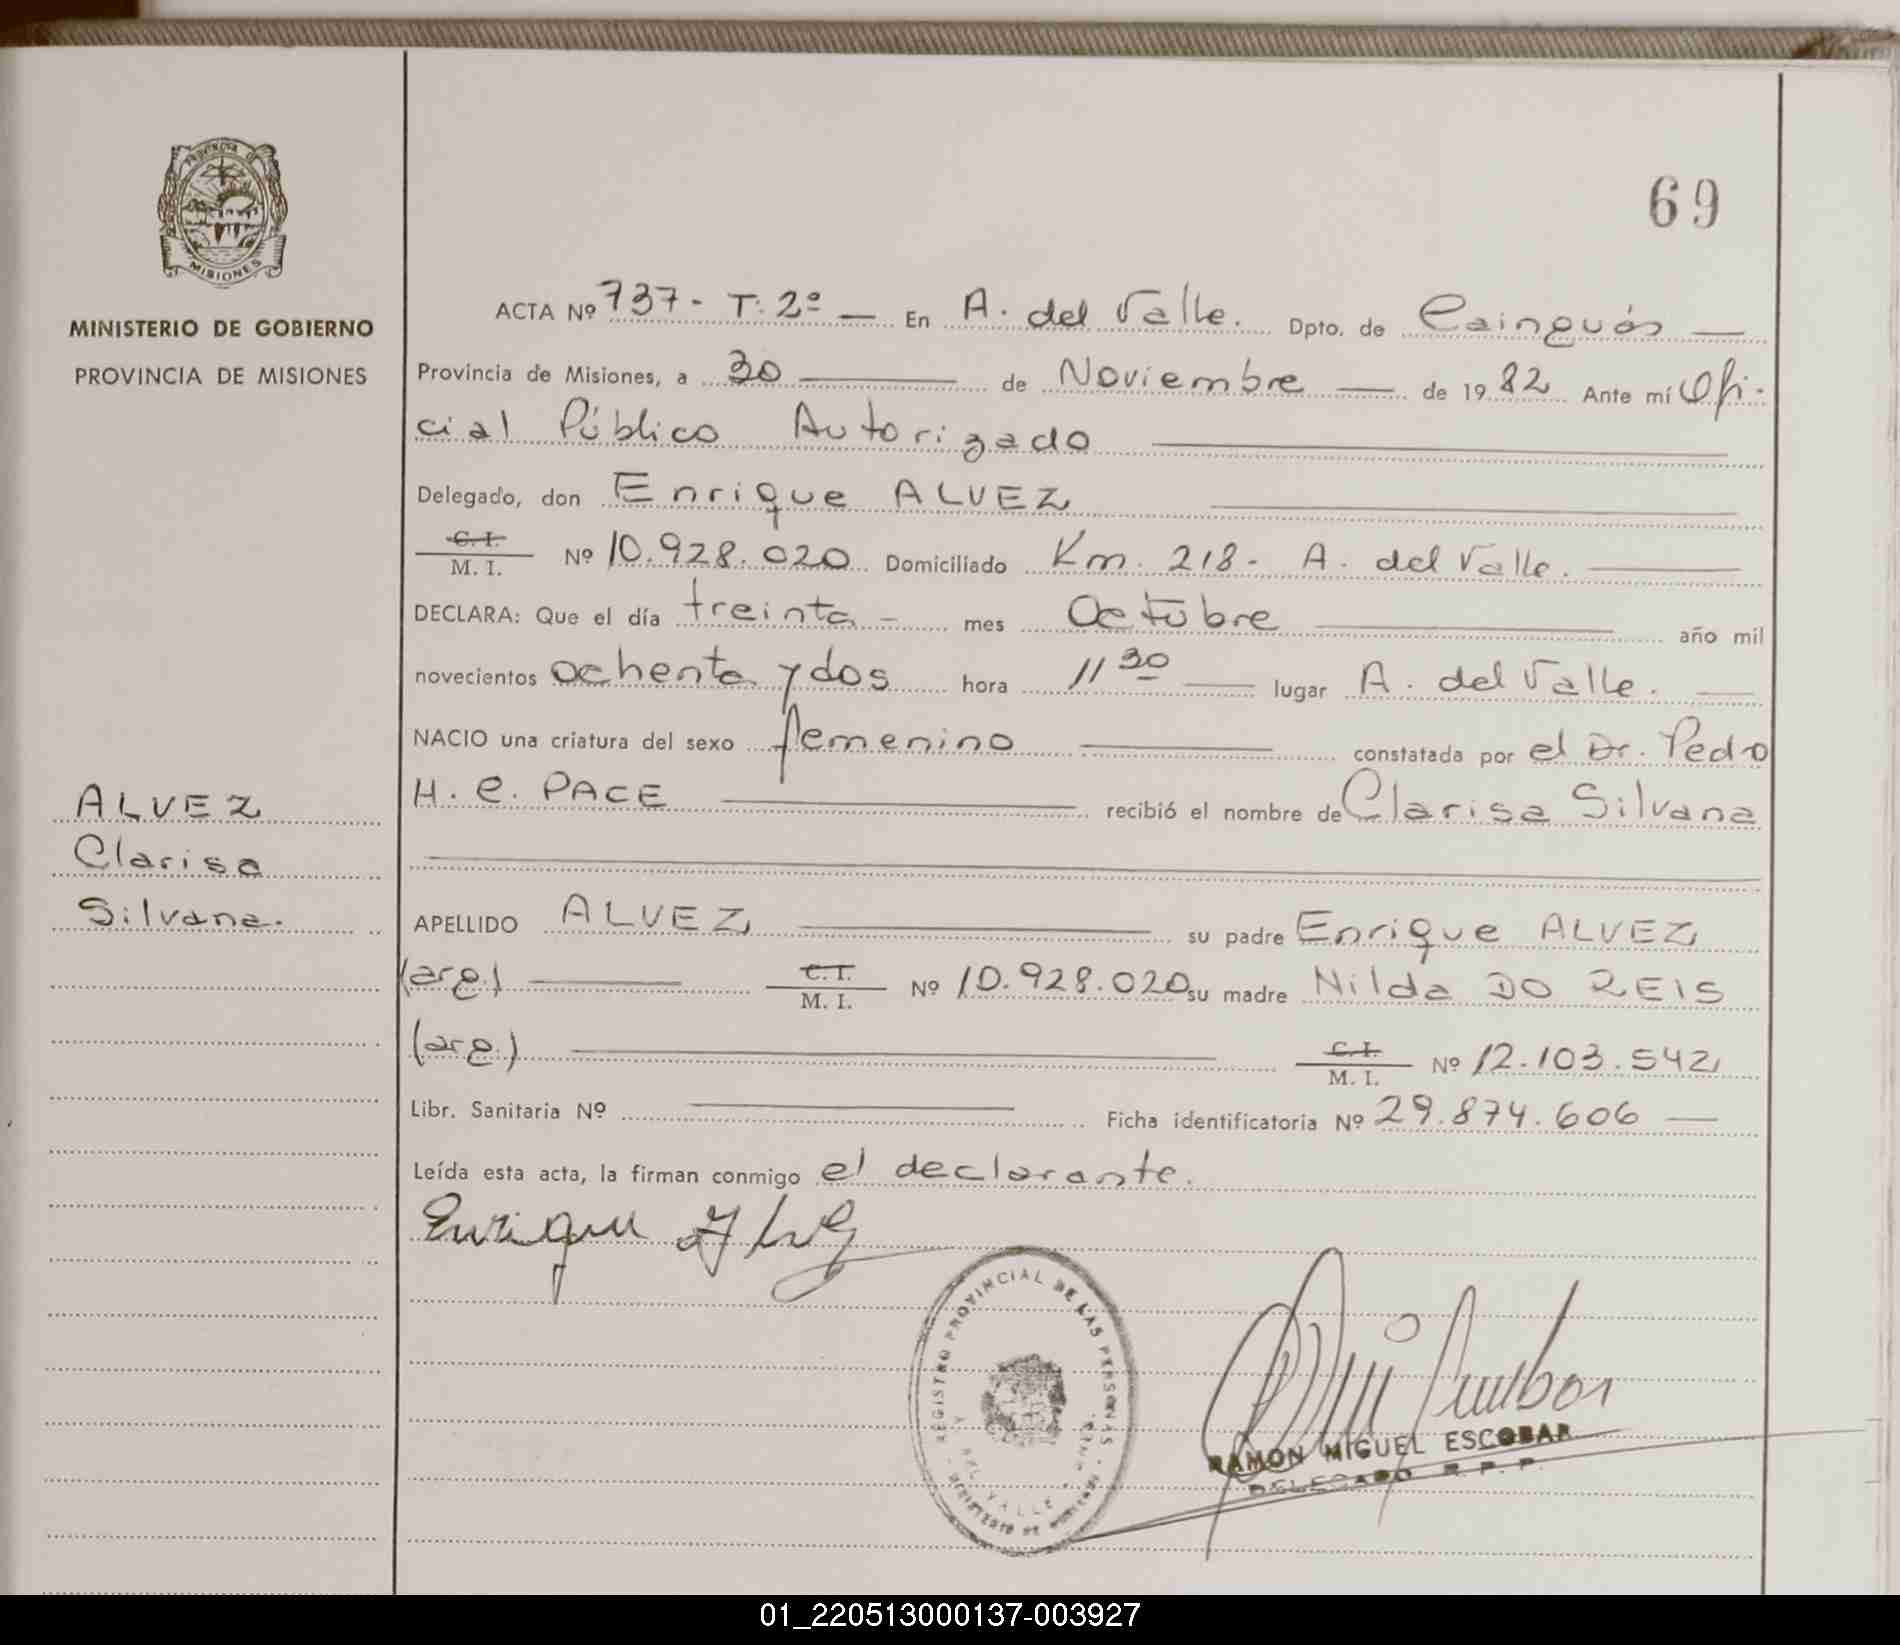 69
PROVINCIA DE
MISIONES
MINISTERIO DE GOBIERNO
PROVINCIA DE MISIONES
ALVEZ
Clarisa
Silvana.
ACTA Nº 737- T: 2º — En A. del Valle. Dpto. de Cainguás —
Provincia de Misiones, a 30 — de Noviembre — de 1982 Ante mí Ofi-
cial Público Autorizado —
Delegado, don Enrique ALVEZ —
C. I.
M. I. Nº 10.928.020 Domiciliado Km. 218- A. del Valle. —
DECLARA: Que el día treinta - mes Octubre — año mil
novecientos ochenta y dos hora 11 30 — lugar A. del Valle. —
NACIO una criatura del sexo femenino — constatada por el Dr. Pedro
H. C. PACE — recibió el nombre de Clarisa Silvana
APELLIDO ALVEZ — su padre Enrique ALVEZ
(arg.) — C. I.
M. I. Nº 10.928.020 su madre Nilda DO REIS
(arg.) — C. I.
M. I. Nº 12.103.542
Libr. Sanitaria Nº — Ficha identificatoria Nº 29.874.606 —
Leída esta acta, la firman conmigo el declarante.
Enrique Alvez
REGISTRO PROVINCIAL DE LAS PERSONAS
DEL VALLE
RAMON MIGUEL ESCOBAR
DELEGADO R. P. P.
01_220513000137-003927